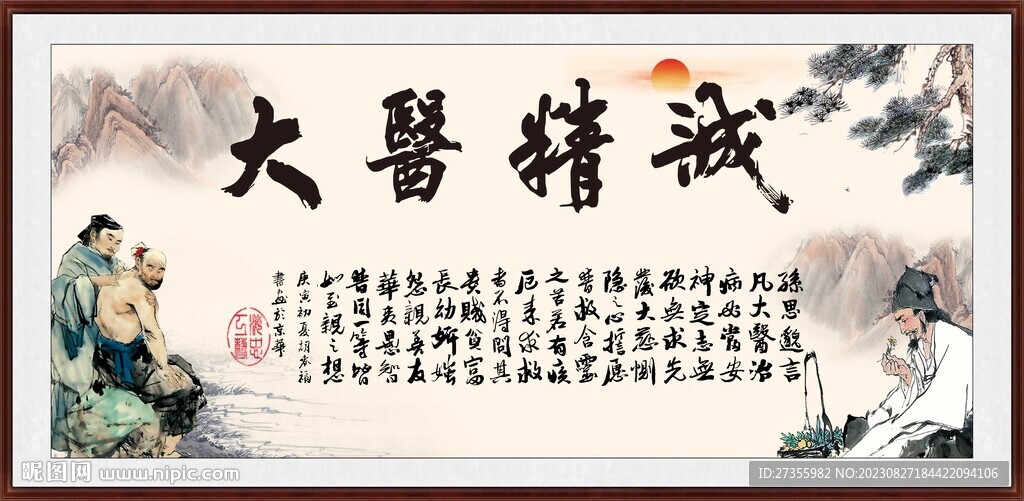 大醫精誠
孫思邈言
凡大醫治
病必當安
神定志無
欲無求先
發大慈惻
隐之心誓愿
普救含靈
之苦若有疾
厄来求救
者不得問其
貴賤貧富
長幼妍媸
怨親善友
華夷愚智
普同一等皆
如至親之想
庚寅初夏胡
書画於京華
昵图网 www.nipic.com
ID:27355982 NO:20230827184422094106